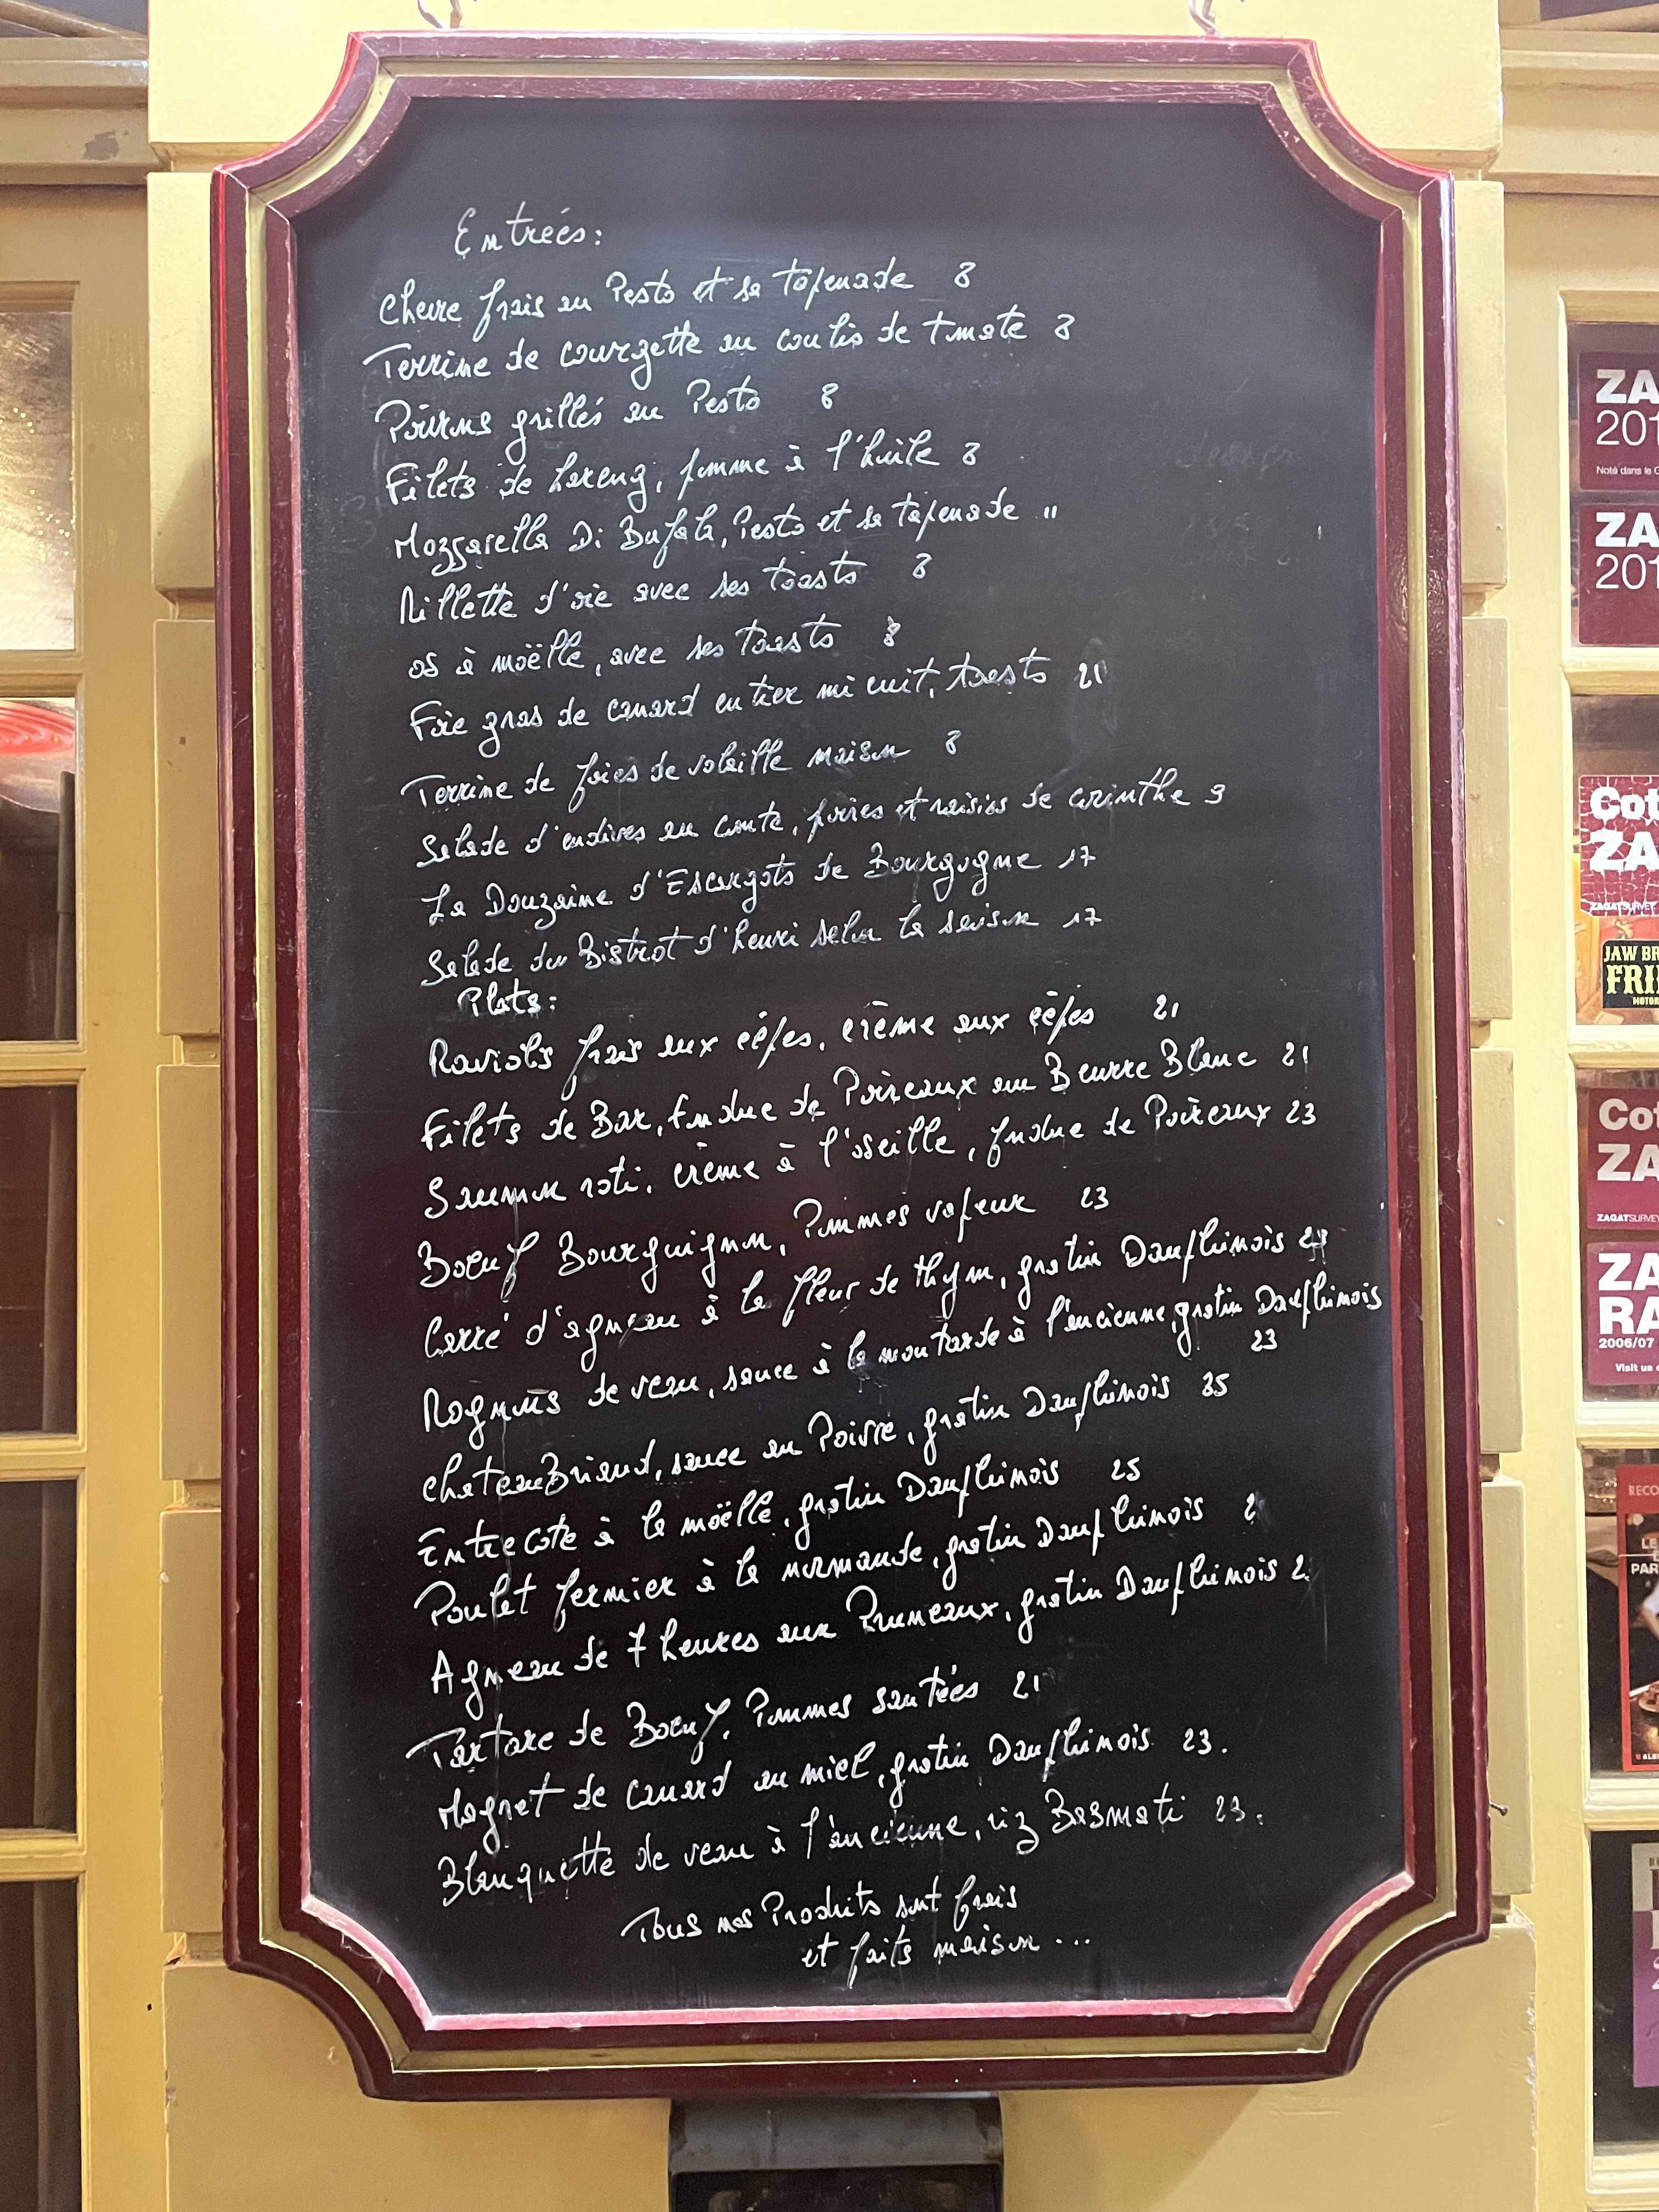 Entrées:
Chevre frais au Pesto et sa tapenade 8
Terrine de courgette au coulis de tomate 8
Poivrons grillés au Pesto 8
Filets de hareng, pomme à l'huile 8
Mozzarella Di Bufala, Pesto et sa tapenade 11
Rillette d'oie avec ses toasts 8
os à moëlle, avec ses toasts 8
Foie gras de canard entier mi cuit, toasts 21
Terrine de foies de volaille maison 8
Salade d'endives au comte, poires et raisins de corinthe 9
La Douzaine d'Escargots de Bourgogne 17
Salade du Bistrot d'henri selon la saison 17
Plats:
Raviolis frais aux cèpes, crème aux cèpes 21
Filets de Bar, fondue de Poireaux au Beurre Blanc 21
Saumon roti, crème à l'oseille, fondue de Poireaux 23
Boeuf Bourguignon, Pommes vapeur 23
Carré d'agneau à la fleur de thym, gratin Dauphinois
Rognons de veau, sauce à la moutarde à l'ancienne, gratin Dauphinois
23
chateauBriand, sauce au Poivre, gratin Dauphinois 25
Entrecote à la moëlle, gratin Dauphinois 25
Poulet fermier à la normande, gratin Dauphinois
Agneau de 7 heures aux Pruneaux, gratin Dauphinois
Tartare de Boeuf, Pommes sautées 21
Magret de canard au miel, gratin Dauphinois 23.
Blanquette de veau à l'ancienne, riz Basmati 23.
Tous nos Produits sont frais
et faits maison...
ZA
201
Noté dans le G
ZA
201
Cot
ZA
ZAGATSURVEY
JAW BR
FRI
MOTOR
Cot
ZA
ZAGATSURVEY
ZA
RA
2006/07
Visit us
RECO
LE
PAR